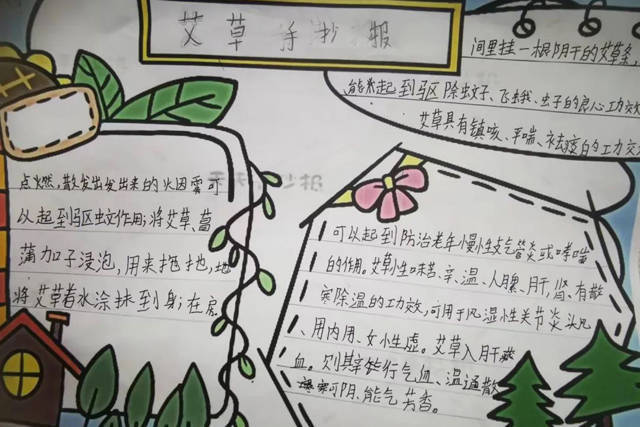 艾草手抄报
间里挂一根阴干的艾草条,
能来起到驱除蚊子、飞蛾、虫子的良心功效
艾草具有镇咳、平喘、祛痰的功效
点燃,散发出发出来的火因雾可
以起到驱蚊作用;将艾草、菖
蒲加子浸泡,用来拖地,地
将艾草着水涂抹到身;在房
可以起到防治老年慢性支气管炎或哮喘
的作用。艾草性味苦、辛、温、入脾、肝、肾、有散
寒除温的功效,可用于风湿性关节炎头风
、用内用、女小生虚。艾草入肝
血。则其辛能行气血、温通散
可阴、能气芳香。